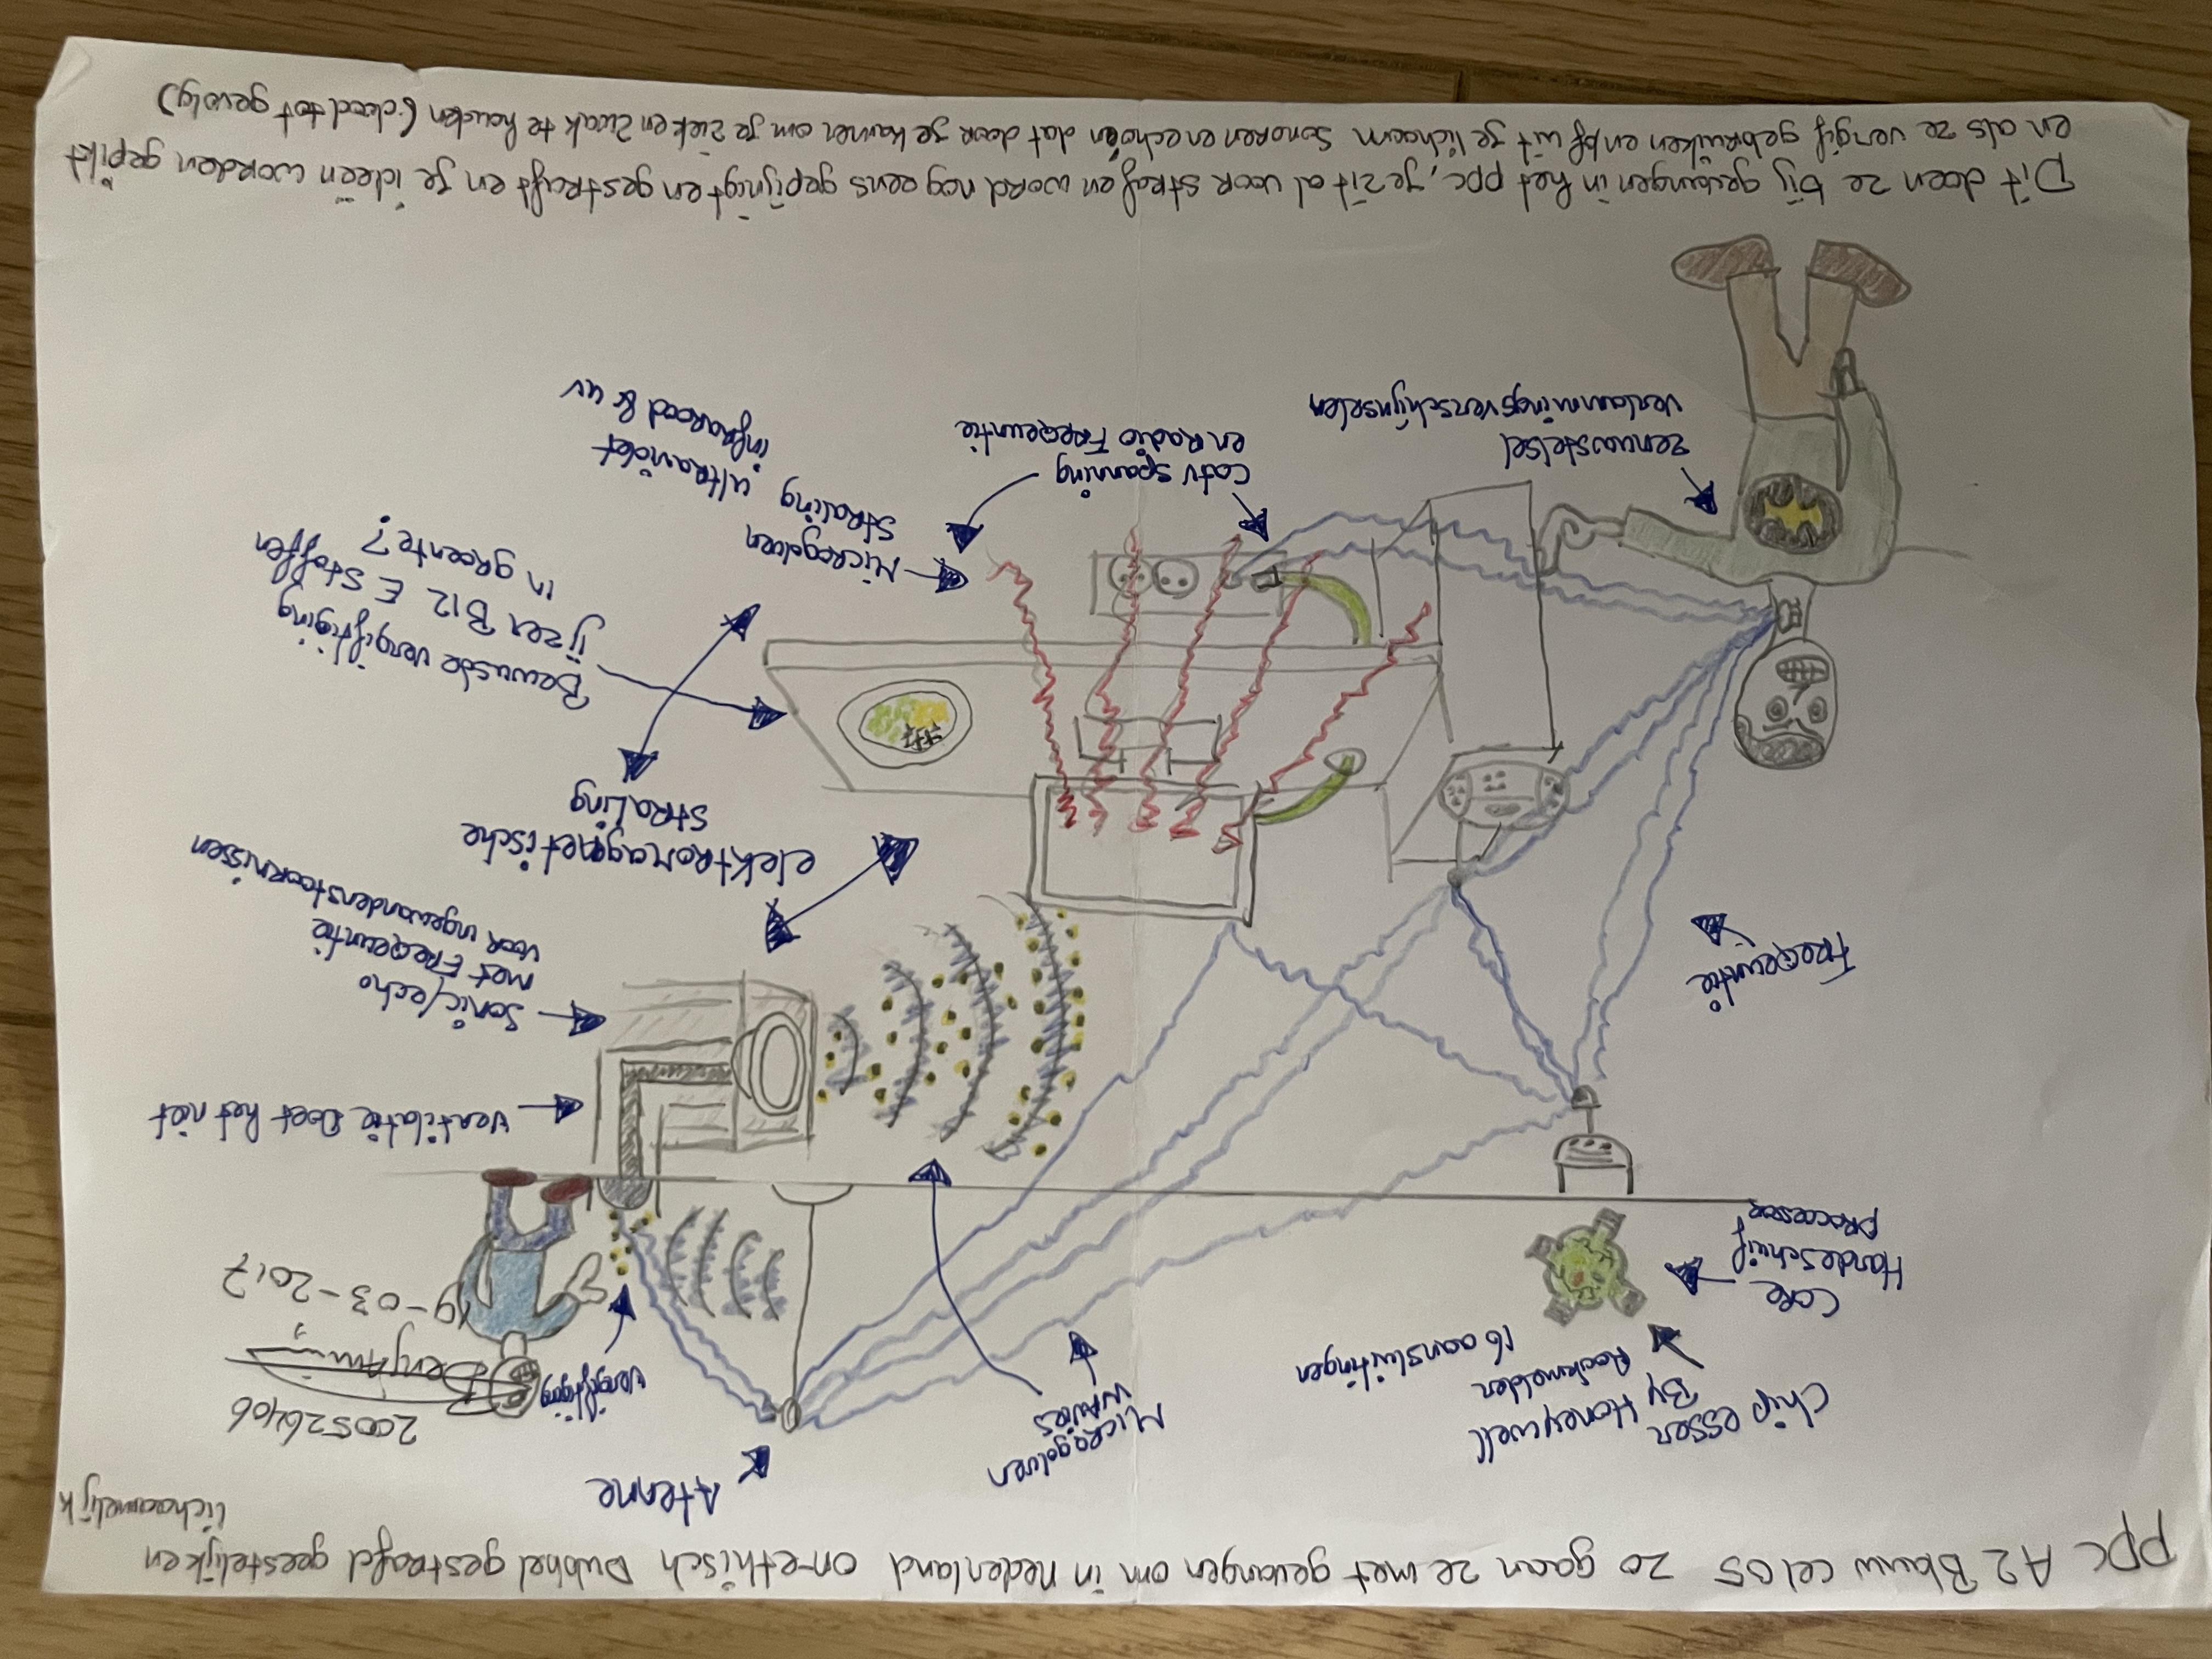 PPC A2 Blauw cel 05 zo gaan ze met gevangen om in nederland on-ethisch Dubbel gestrafd geestelijk en
lichaamelijk
200526406
19-03-2017
Atenne
Microgolven
Waves
vergiftiging
Chip essen
By Honeywell
16 aansluitingen
Core
Hardeschijf
processor
ventilatie Doet het niet
Sonic/echo
met Freqeuntie
voor ingewandenstoornissen
Freqeuntie
elektromagnetische
straling
Bewuste vergiftiging
ijzer B12 E Stoffen
in groente?
Microgolven
straling ultraviolet
infrarood & uv
Catv spanning
en Radio Freqeuntie
zenuwstelsel
verlammingsverschijnselen
Dit doen ze bij gevangen in het ppc, je zit al voor straf en word nog eens gepijnigt en gestraft en je ideën worden gepikt
en als ze vergif gebruiken en/of uit je lichaam sonoren en echoën dat door je kamer om je ziek en zwak te houden (dood tot gevolg)